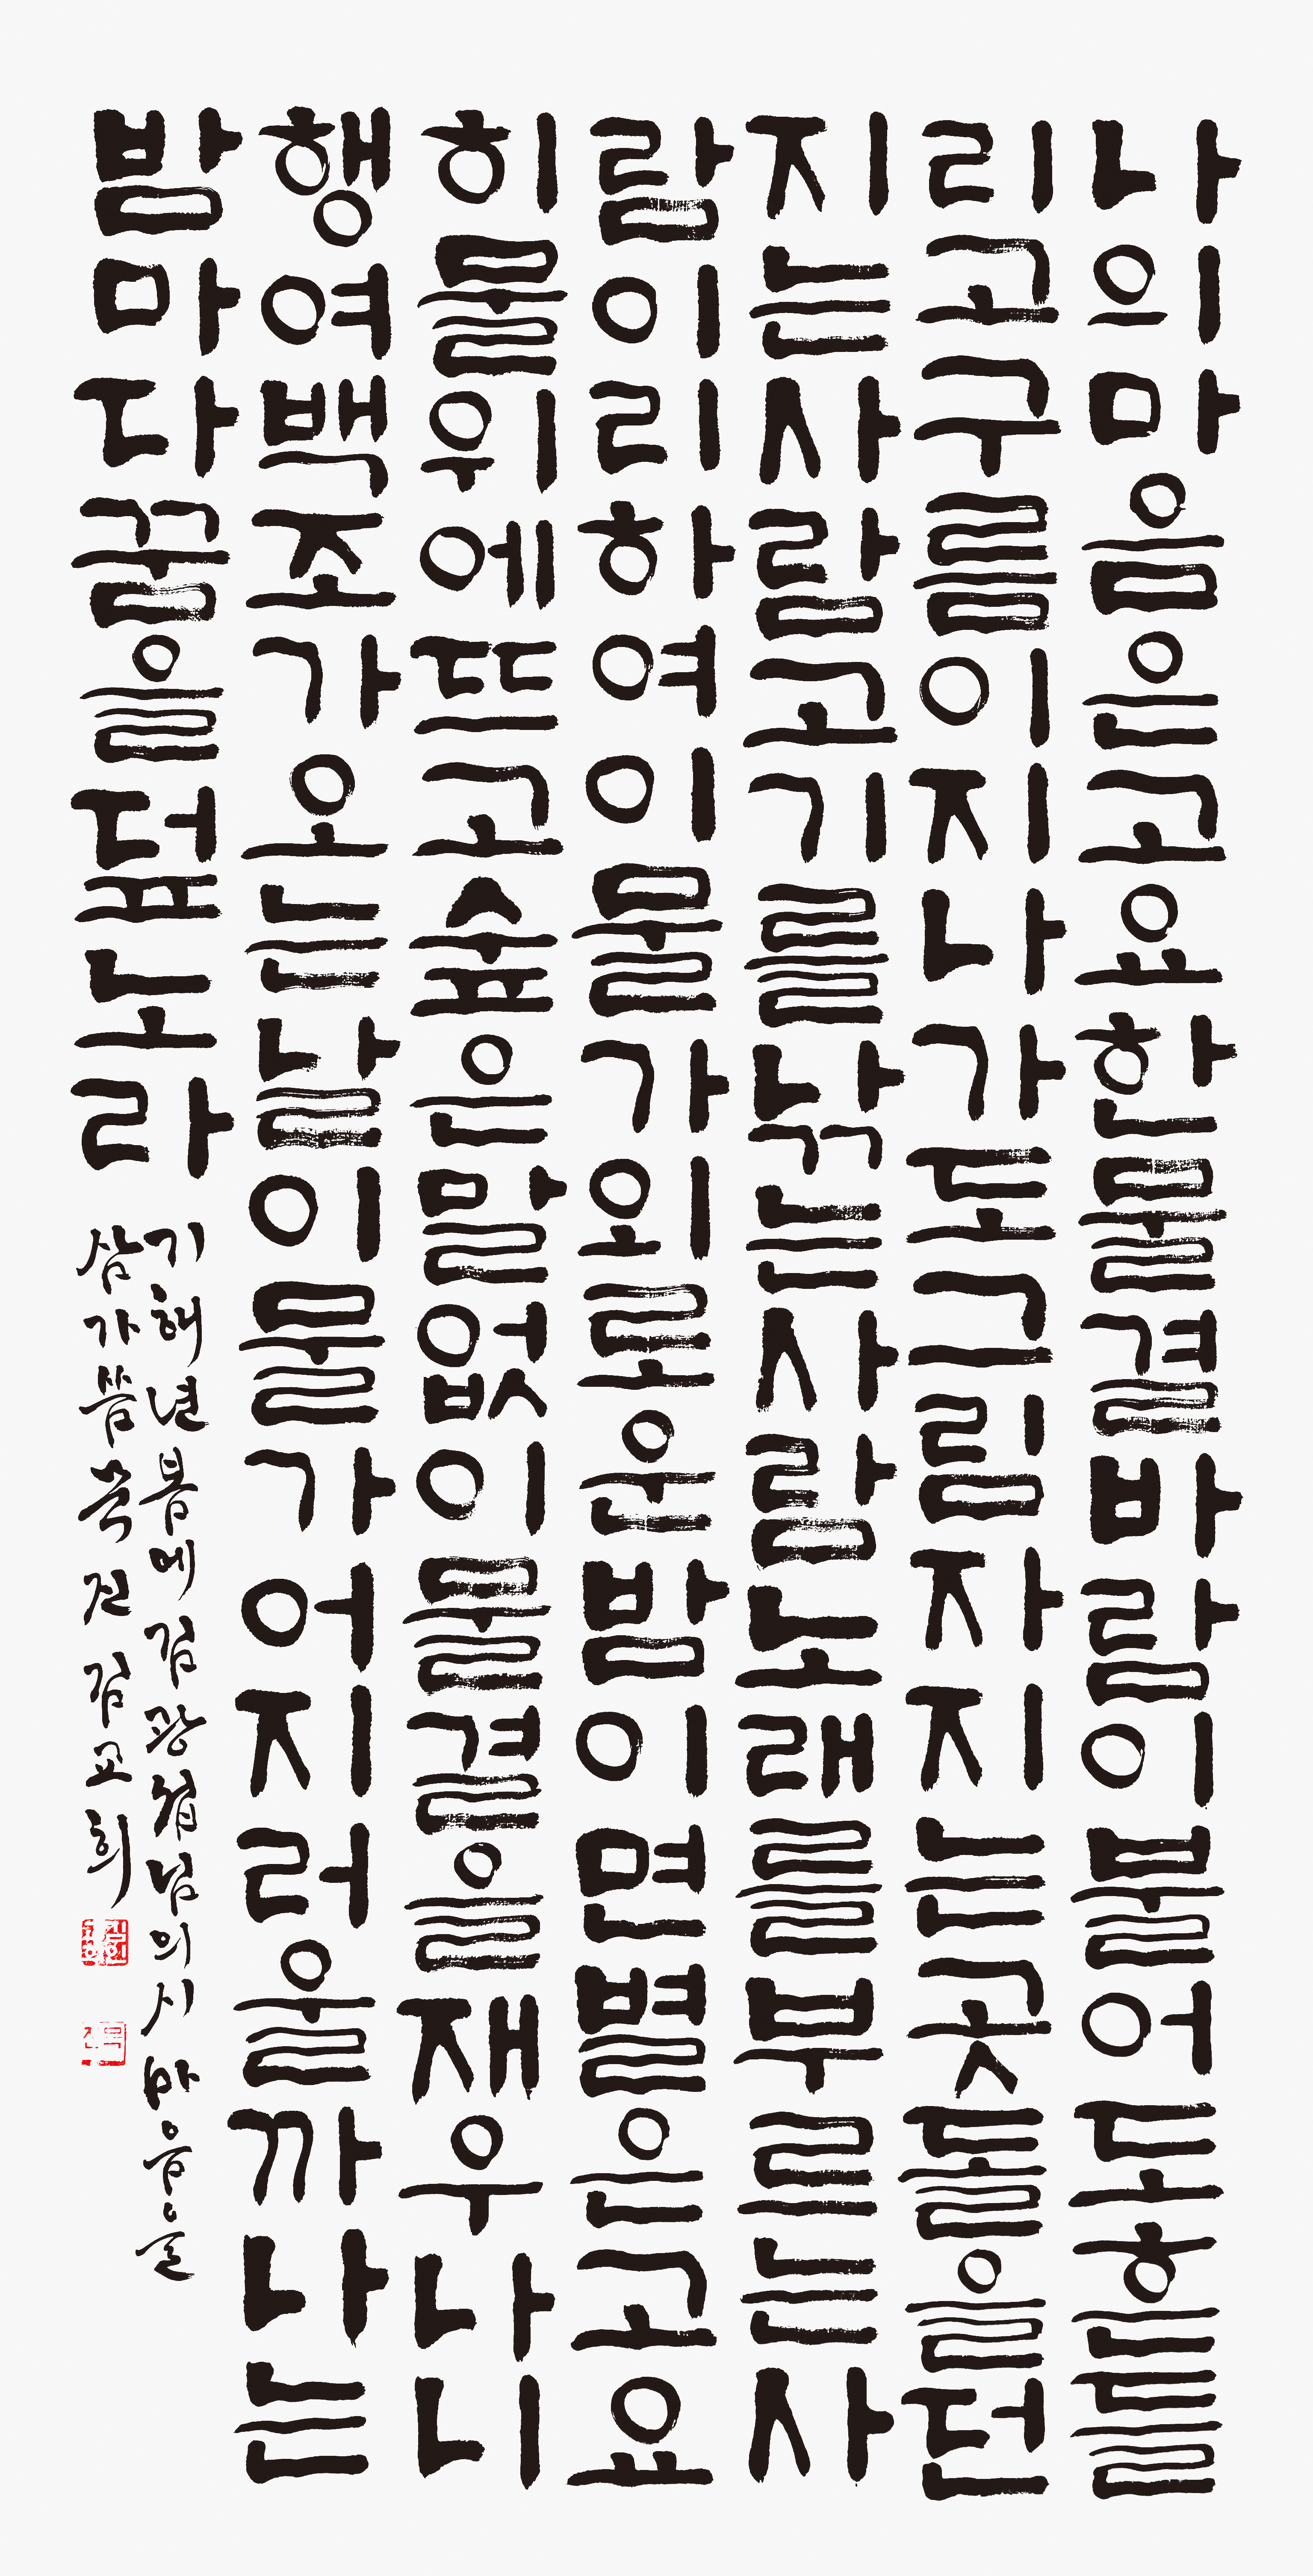 나의마음은고요한물결바람이불어도흔들
리고구름이지나가도그림자지는곳돌을던
지는사람고기를낚는사람노래를부르는사
람이리하여이물가외로운밤이면별은고요
히물위에뜨고숲은말없이물결을재우나니
행여백조가오는날이물가어지러울까나는
밤마다꿈을덮노라
기해년봄에김광섭님의시마음을
삼가씀 김교희